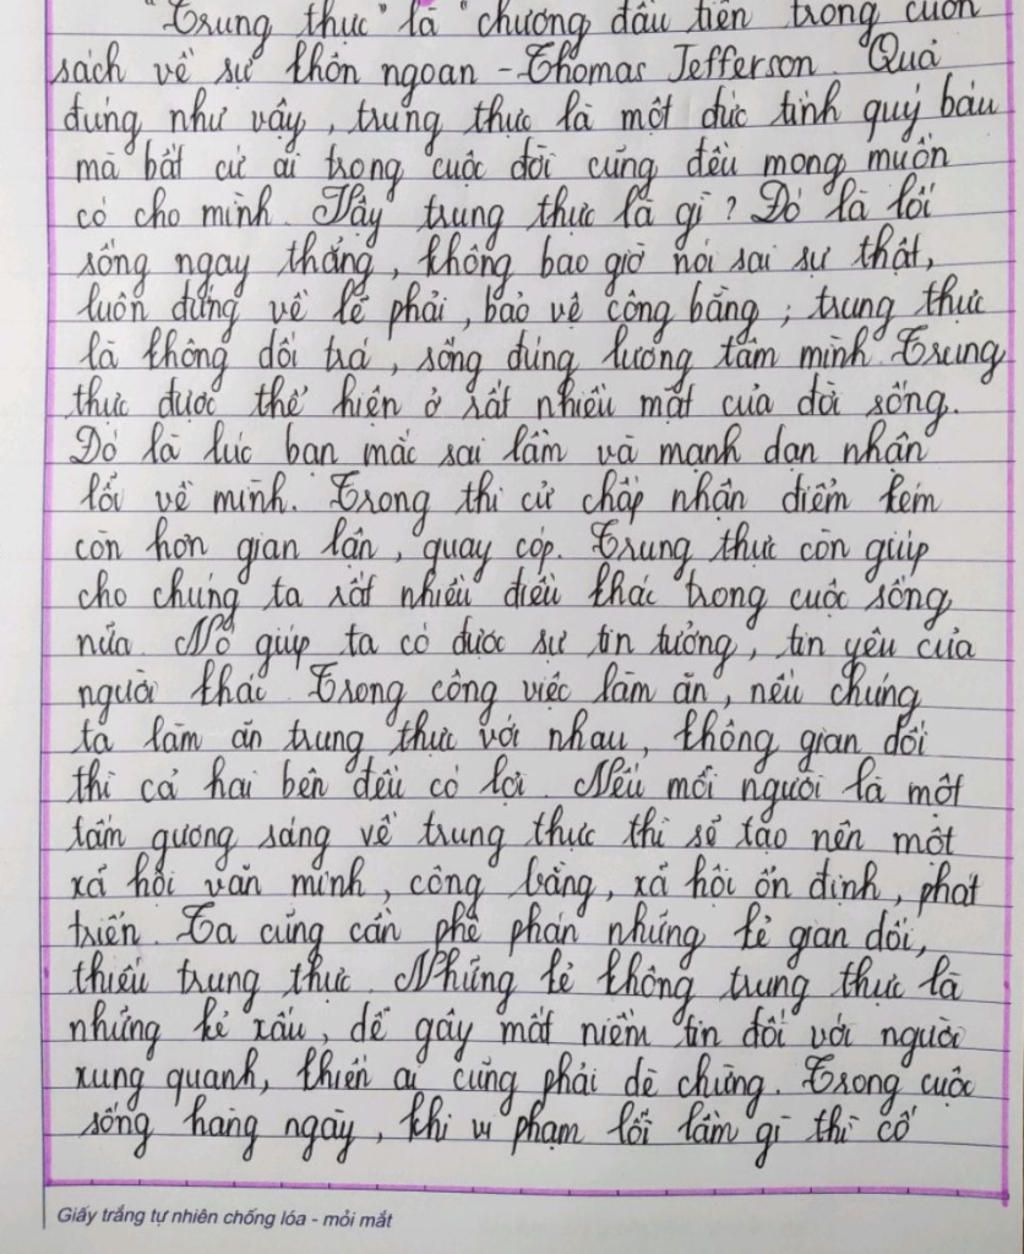 "Trung thực" là "chương đầu tiên trong cuốn
sách về sự khôn ngoan - Thomas Jefferson. Quả
đúng như vậy, trung thực là một đức tính quý báu
mà bất cứ ai trong cuộc đời cũng đều mong muốn
có cho mình. Vậy trung thực là gì? Đó là lối
sống ngay thẳng, không bao giờ nói sai sự thật,
luôn đứng về lẽ phải, bảo vệ công bằng; trung thực
là không dối trá, sống đúng lương tâm mình. Trung
thực được thể hiện ở rất nhiều mặt của đời sống.
Đó là lúc bạn mắc sai lầm và mạnh dạn nhận
lỗi về mình. Trong thi cử chấp nhận điểm kém
còn hơn gian lận, quay cóp. Trung thực còn giúp
cho chúng ta rất nhiều điều khác trong cuộc sống
nữa. Nó giúp ta có được sự tin tưởng, tin yêu của
người khác. Trong công việc làm ăn, nếu chúng
ta làm ăn trung thực với nhau, không gian dối
thì cả hai bên đều có lợi. Nếu mỗi người là một
tấm gương sáng về trung thực thì sẽ tạo nên một
xã hội văn minh, công bằng, xã hội ổn định, phát
triển. Ta cũng cần phê phán những kẻ gian dối,
thiếu trung thực. Những kẻ không trung thực là
những kẻ xấu, dễ gây mất niềm tin đối với người
xung quanh, khiến ai cũng phải dè chừng. Trong cuộc
sống hàng ngày, khi vi phạm lỗi lầm gì thì cố
Giấy trắng tự nhiên chống lóa - mỏi mắt